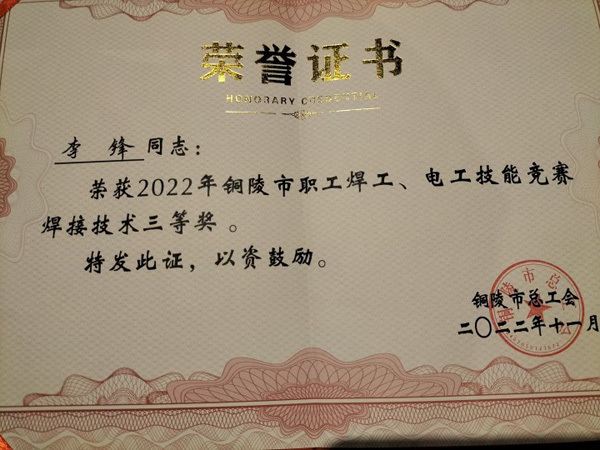 荣誉证书
HONORARY CREDENTIAL
李 锋 同志：
荣获2022年铜陵市职工焊工、电工技能竞赛
焊接技术三等奖。
特发此证，以资鼓励。
铜陵市总工会
二〇二二年十一月